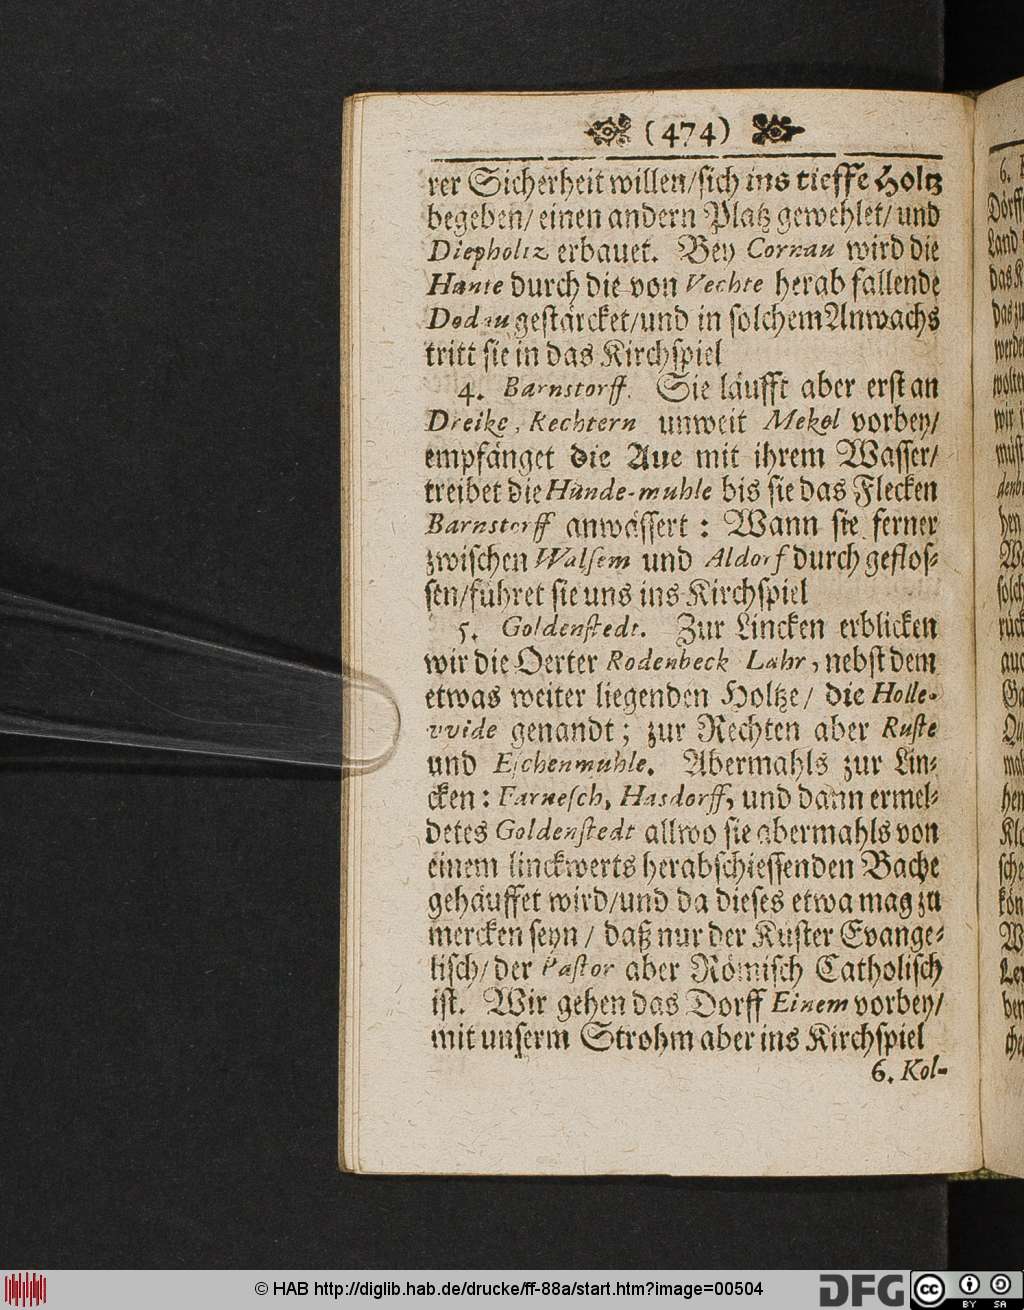 (474)
rer Sicherheit willen/sich ins tieffe Holtz
begeben/ einen andern Platz gewehlet/ und
Diepholtz erbauet. Bey Cornau wird die
Hante durch die von Vechte herab fallende
Dodau gestärcket/und in solchem Anwachs
tritt sie in das Kirchspiel
4. Barnstorff. Sie läufft aber erst an
Dreike, Rechtern unweit Mekel vorbey/
empfänget die Aue mit ihrem Wasser/
treibet die Hunde-muhle bis sie das Flecken
Barnstorff anwässert: Wann sie ferner
zwischen Walsem und Aldorf durch geflos-
sen/führet sie uns ins Kirchspiel
5. Goldenstedt. Zur Lincken erblicken
wir die Oerter Rodenbeck Lahr, nebst dem
etwas weiter liegenden Holtze/ die Holle-
vvide genandt; zur Rechten aber Ruste
und Eichenmuhle. Abermahls zur Lin-
cken: Farnesch, Hasdorff, und dann ermel-
detes Goldenstedt allwo sie abermahls von
einem linckwerts herabschiessenden Bache
gehäuffet wird/und da dieses etwa mag zu
mercken seyn / daß nur der Küster Evange-
lisch/ der Pastor aber Römisch Catholisch
ist. Wir gehen das Dorff Einem vorbey/
mit unserm Strohm aber ins Kirchspiel
6. Kol-
6.
Dörff
Land
das K
das zu
werde
wolten
wir i
müst
denb
hen
We
solch
rück
auc
Ga
Qu
mah
hen
Klo
sche
kön
W
Ley
den
che
© HAB http://diglib.hab.de/drucke/ff-88a/start.htm?image=00504
DFG
cc BY SA